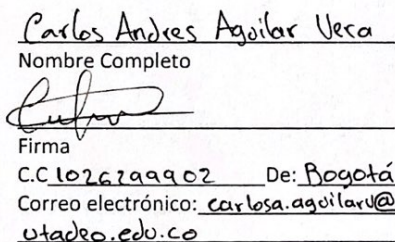 Carlos Andres Aguilar Vera
Nombre Completo
Firma
C.C 1026299902 De: Bogotá
Correo electrónico: carlosa.aguilarv@
utadeo.edu.co